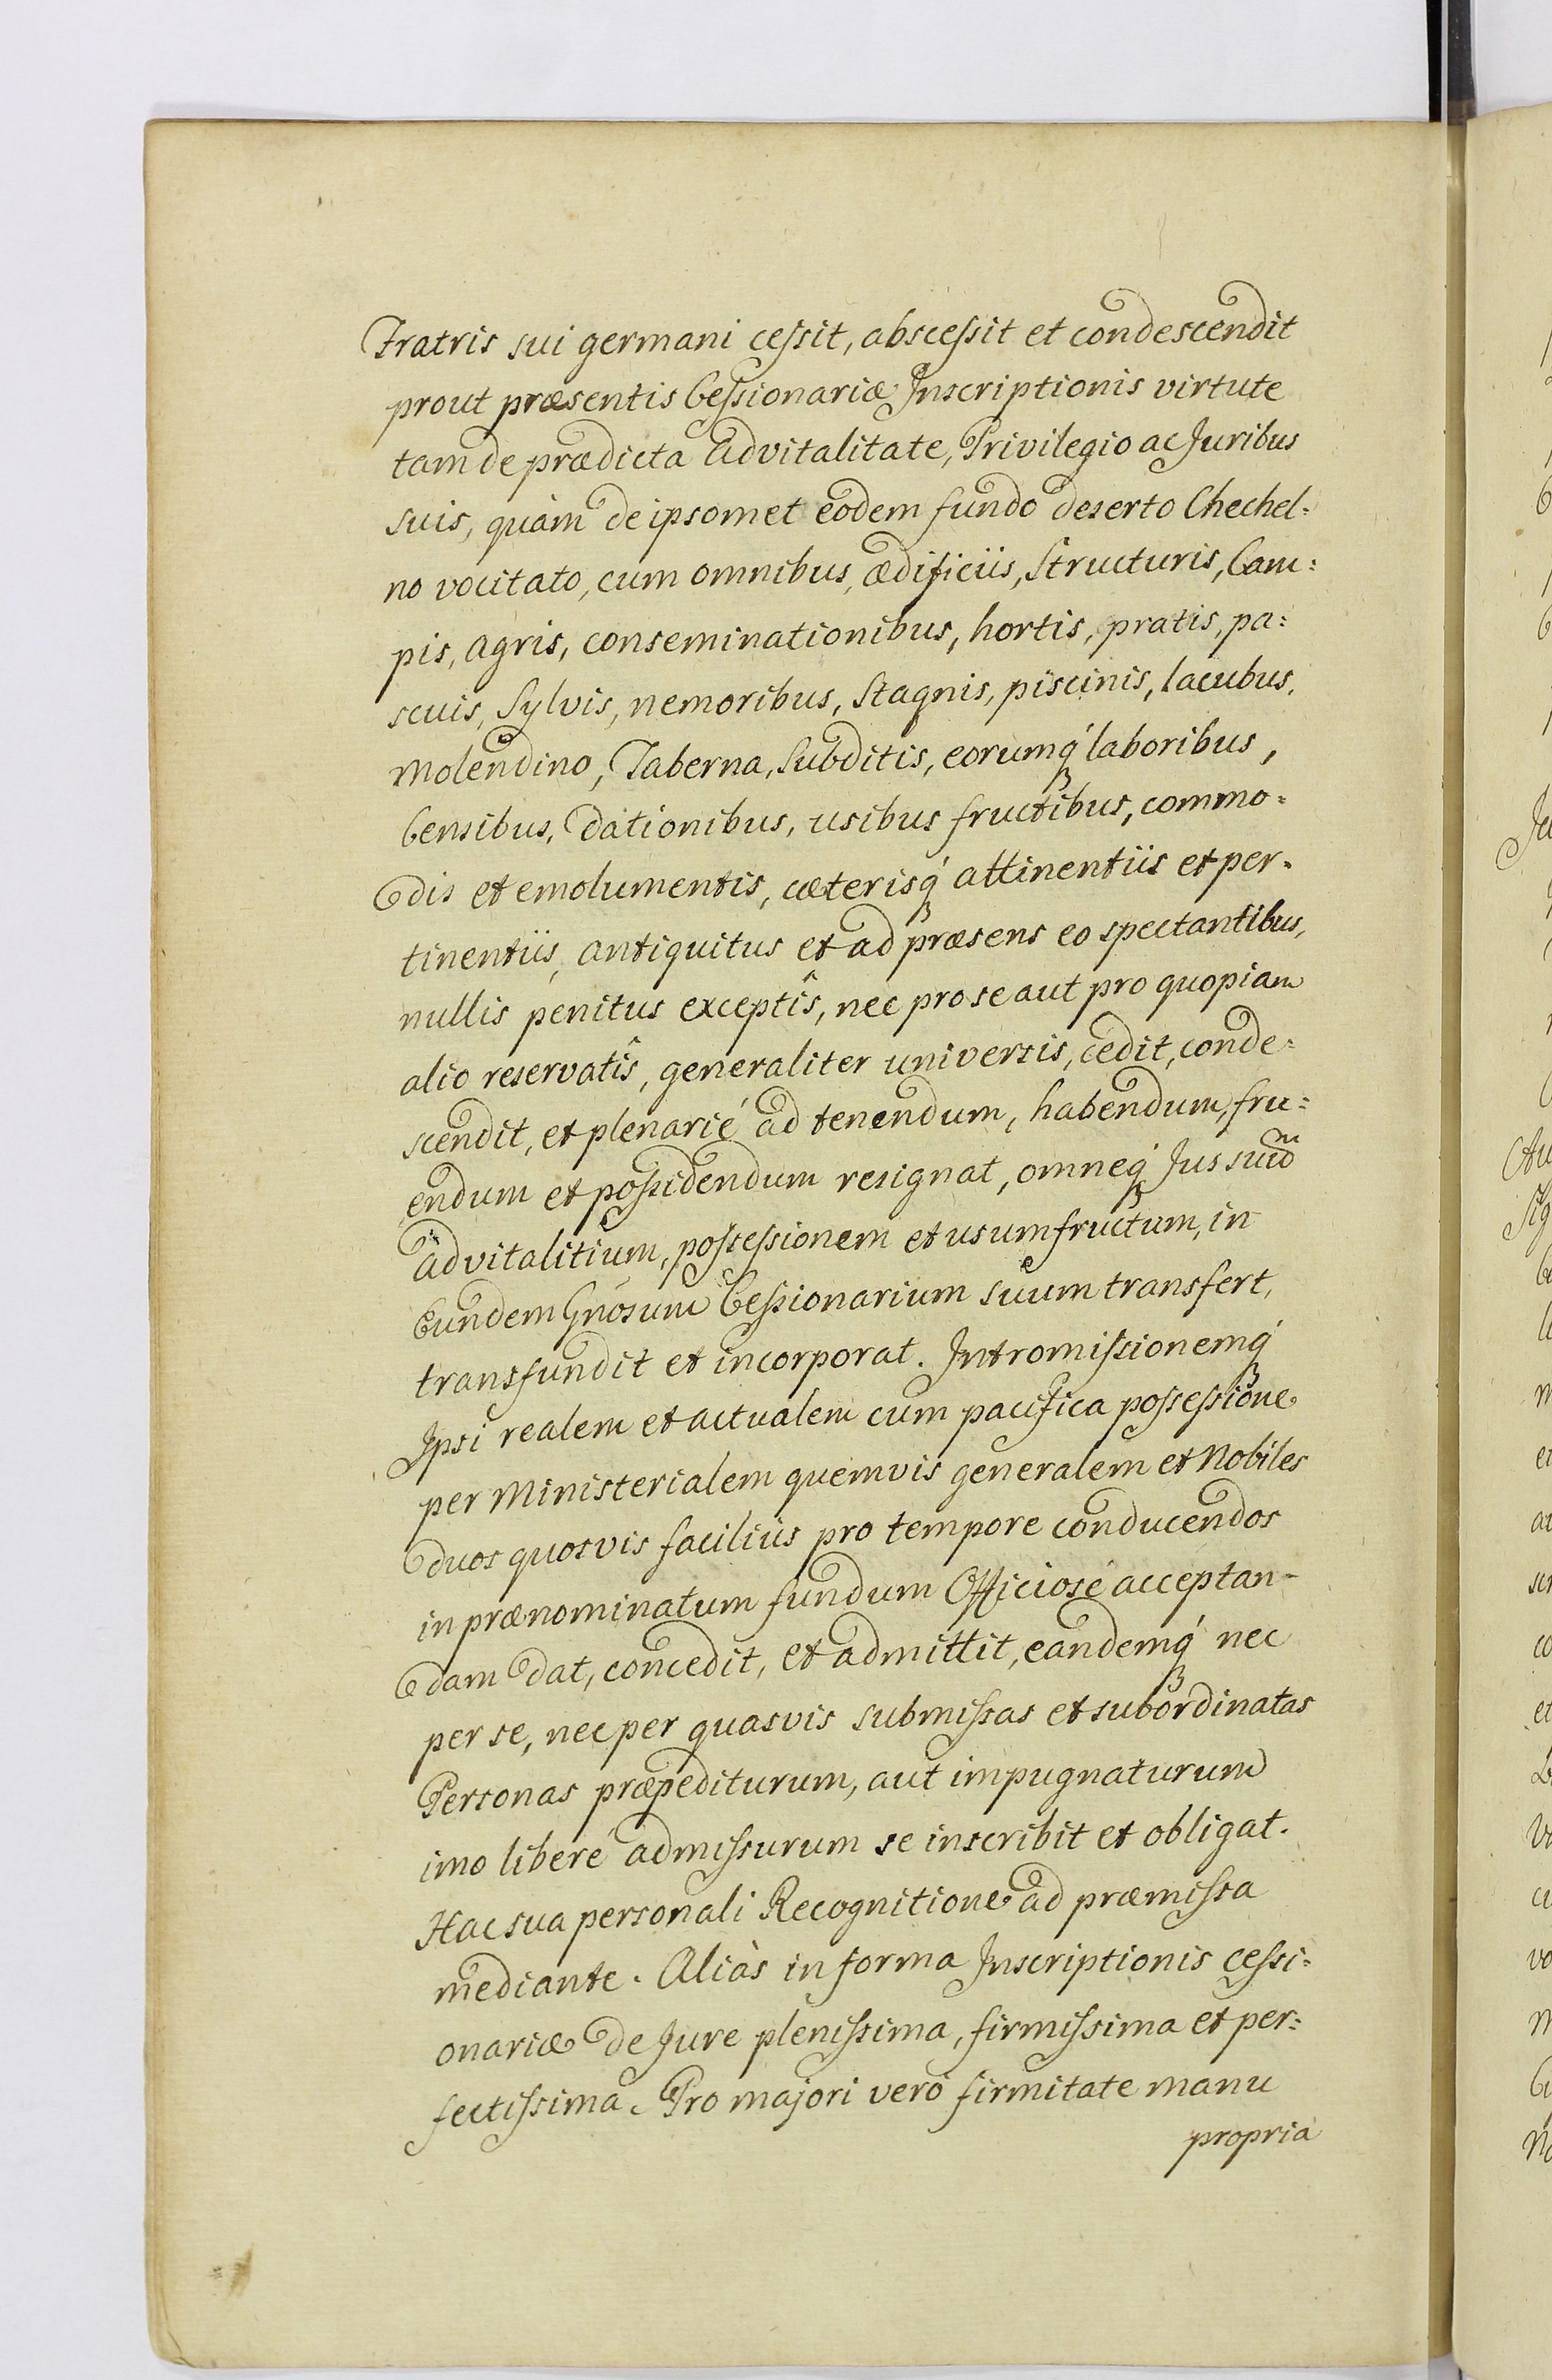 Fratris sui germani cessit, abscessit et condescendit
prout præsentis Cessionariæ Inscriptionis virtute
tam de prædicta Advitalitate, Privilegio ac Juribus
suis, quàm de ipsomet eodem fundo deserto Chechel=
no vocitato, cum omnibus, ædificiis, Structuris, Cam=
pis, Agris, conseminationibus, hortis, pratis, pa=
scuis, Sylvis, nemoribus, Stagnis, piscinis, lacubus,
Molendino, Taberna, Subditis, eorumq́ꝫ laboribus,
Censibus, dationibus, usibus fructibus, commo=
dis et emolumentis, cæterisq́ꝫ attinentiis et per=
tinentiis, antiquitus et ad præsens eo spectantibus,
nullis penitus exceptîs, nec pro se aut pro quopiam
alio reservatîs, generaliter universis, cedit, conde=
scendit, et plenarié ad tenendum, habendum, fru=
endum et possidendum resignat, omneq́ꝫ Jus suũm
advitalitium, possessionem et usumfructum, in
Eundem Gnosum Cessionarium suum transfert,
transfundit et incorporat. Intromissionemq́ꝫ
Ipsi realem et actualem cum pacifica possessione
per Ministerialem quemvis generalem et Nobiles
duos quosvis faciliùs pro tempore conducendos
in prænominatum fundum Officiosé acceptan-
dam dat, concedit, et admittit, eandemq́ꝫ nec
per se, nec per quasvis submissas et subordinatas
Personas præpediturum, aut impugnaturum
imo liberé admissurum se inscribit et obligat.
Hac sua personali Recognitione ad præmissa
mediante. Aliàs in forma Inscriptionis cessi=
onariæ de Jure plenissima, firmissima et per=
fectissima. Pro majori veró firmitate manu
propria